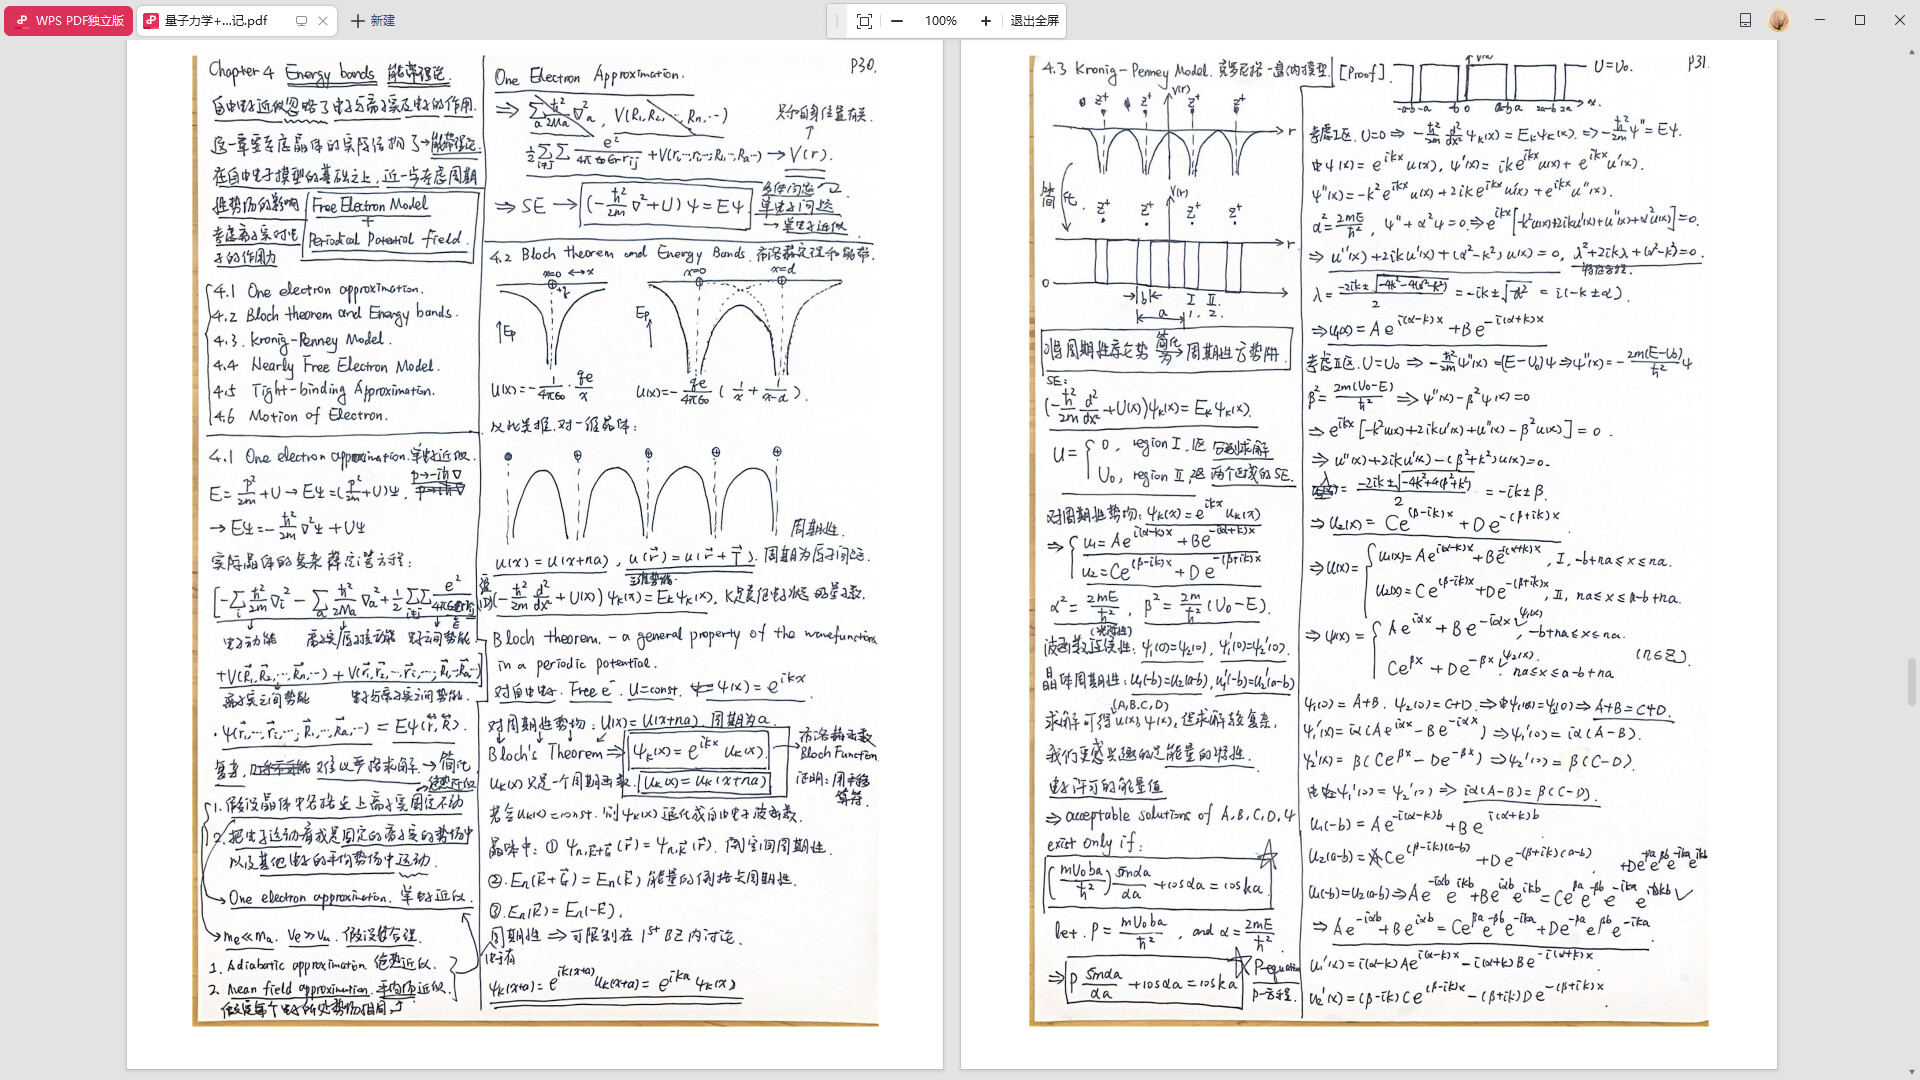 WPS PDF独立版
量子力学+...记.pdf
新建
100%
退出全屏
P30.
Chapter 4 Energy bands 能带理论.
自由电子近似忽略了电子与离子实及电子的作用.
这一章要考虑晶体的实际结构了→能带理论.
在自由电子模型的基础之上,近一步考虑周期
性势场的影响
Free Electron Model
+
Periodical Potential field.
考虑离子实对电
子的作用力
4.1 One electron approximation.
4.2 Bloch theorem and Energy bands.
4.3. Kronig-Penney Model.
4.4 Nearly Free Electron Model.
4.5 Tight-binding Approximation.
4.6 Motion of Electron.
4.1 One electron approximation.单电子近似.
p→-iħ∇
E=p²/2m+U→Eψ=(p²/2m+U)ψ.
→Eψ=-ħ²/2m ∇²ψ+Uψ
实际晶体的复杂薛定谔方程:
电子动能
电子之间势能
离子实之间势能
电子与离子实之间势能.
复杂,
难以严格求解.→简化
绝热近似
1.假设晶体中各格点上离子实固定不动
2.把电子运动看成是固定的离子实的势场中
以及其他电子的平均势场中运动.
→One electron approximation. 单电子近似.
→me≪ma. Ve≫Va. 假设合理.
1. Adiabatic approximation 绝热近似.
2. Mean field approximation.平均场近似.
假定每个电子所处势场相同
One Electron Approximation.
只和自身位置有关.
→V(r).
⇒SE→(-ħ²/2m ∇²+U)ψ=Eψ.
多体问题
单电子问题
→单电子近似
4.2 Bloch theorem and Energy Bands. 布洛赫定理和能带.
x=0 ↔x
x=0
x=d
+q
↑Ep
Ep↑
U(x)=-1/4πε₀·qe/x
U(x)=-qe/4πε₀(1/x+1/x-d).
以此类推.对一维晶体:
周期性.
u(x)=u(x+na), u(r⃗)=u(r⃗+T⃗). 周期为原子间距.
三维势能.
(-ħ²/2m d²/dx²+U(x))ψk(x)=Ekψk(x). k是表征电子状态的量子数.
Bloch theorem.-a general property of the wavefunction
in a periodic potential.
对自由电子. Free e⁻. U=const. ψ(x)=e^ikx
对周期性势场: U(x)=U(x+na) 周期为a.
Bloch's Theorem⇒ψk(x)=e^ikx uk(x).
→布洛赫函数
Bloch Function
uk(x)只是一个周期函数. uk(x)=uk(x+na)
证明:用平移
算符.
若令uk(x)=const. 则ψk(x)退化成自由电子波函数.
晶体中: ① ψn,k⃗+G⃗(r⃗)=ψn,k⃗(r⃗). 倒空间周期性.
②.En(k⃗+G⃗)=En(k⃗) 能量的倒格矢周期性.
③.En(k⃗)=En(-k⃗).
周期性⇒可限制在1st BZ内讨论.
ψk(x+a)=e^ik(x+a)uk(x+a)=e^ika ψk(x)
P31.
4.3 Kronig-Penney Model.
V(r)
Z⁺ Z⁺ Z⁺ Z⁺
r
简化.
V(r)
Z⁺ Z⁺ Z⁺ Z⁺
r
0
b
I II
a
1. 2.
将周期性库仑势简化为周期性方势阱.
SE:
(-ħ²/2m d²/dx²+U(x))ψk(x)=Ekψk(x).
U={0, region I, 区
U₀, region II, 区
分别求解
两个区域的SE.
对周期性势场: ψk(x)=e^ikx uk(x)
⇒{u₁=Ae^i(α-k)x+Be^-i(α+k)x
u₂=Ce^(β-ik)x+De^-(β+ik)x
α²=2mE/ħ², β²=2m/ħ²(U₀-E).
(光滑性)
波函数连续性: ψ₁(0)=ψ₂(0), ψ₁'(0)=ψ₂'(0).
晶体周期性: u₁(-b)=u₂(a-b), u₁'(-b)=u₂'(a-b)
(A,B,C,D)
求解可得u(x),ψ(x),但求解较复杂,
我们更感兴趣的是能量的特性.
电子许可的能量值
⇒acceptable solutions of A,B,C,D,ψ
exist only if:
(mU₀ba/ħ²)sinαa/αa+cosαa=coska.
let. P=mU₀ba/ħ², and α²=2mE/ħ².
⇒P sinαa/αa+cosαa=coska
P-equation
P-方程.
[Proof].
U=U₀.
考虑I区. U=0⇒-ħ²/2m d²/dx² ψk(x)=Ekψk(x).⇒-ħ²/2m ψ''=Eψ.
由ψ(x)=e^ikx u(x), ψ'(x)=ike^ikx u(x)+e^ikx u'(x).
ψ''(x)=-k²e^ikx u(x)+2ike^ikx u'(x)+e^ikx u''(x).
α²=2mE/ħ², ψ''+α²ψ=0.⇒e^ikx[-k²u(x)+2iku'(x)+u''(x)+α²u(x)]=0.
⇒u''(x)+2iku'(x)+(α²-k²)u(x)=0, λ²+2ikλ+(α²-k²)=0.
特征方程.
λ=(-2ik±√(-4k²-4(α²-k²)))/2=-ik±√-α²=i(-k±α).
⇒u₁(x)=Ae^i(α-k)x+Be^-i(α+k)x
考虑II区. U=U₀⇒-ħ²/2m ψ''(x)=(E-U₀)ψ⇒ψ''(x)=-2m(E-U₀)/ħ² ψ
β²=2m(U₀-E)/ħ²⇒ψ''(x)-β²ψ(x)=0
⇒e^ikx[-k²u(x)+2iku'(x)+u''(x)-β²u(x)]=0.
⇒u''(x)+2iku'(x)-(β²+k²)u(x)=0.
λ=(-2ik±√(-4k²+4(β²+k²)))/2=-ik±β.
⇒u₂(x)=Ce^(β-ik)x+De^-(β+ik)x
⇒u(x)={u₁(x)=Ae^i(α-k)x+Be^-i(α+k)x, I, -b+na≤x≤na.
u₂(x)=Ce^(β-ik)x+De^-(β+ik)x, II, na≤x≤a-b+na.
⇒ψ(x)={Ae^iαx+Be^-iαx, ψ₁(x) -b+na≤x≤na.
Ce^βx+De^-βx, ψ₂(x) na≤x≤a-b+na
(n∈Z).
ψ₁(0)=A+B. ψ₂(0)=C+D.⇒由ψ₁(0)=ψ₂(0)⇒A+B=C+D.
ψ₁'(x)=iα(Ae^iαx-Be^-iαx)⇒ψ₁'(0)=iα(A-B).
ψ₂'(x)=β(Ce^βx-De^-βx)⇒ψ₂'(0)=β(C-D).
由ψ₁'(0)=ψ₂'(0)⇒iα(A-B)=β(C-D).
u₁(-b)=Ae^-i(α-k)b+Be^i(α+k)b
u₂(a-b)=Ce^(β-ik)(a-b)+De^-(β+ik)(a-b)
⇒Ae^-iαb+Be^iαb=Ce^βa e^-βb e^-ika+De^-βa e^βb e^-ika.
u₁'(x)=i(α-k)Ae^i(α-k)x-i(α+k)Be^-i(α+k)x.
u₂'(x)=(β-ik)Ce^(β-ik)x-(β+ik)De^-(β+ik)x.